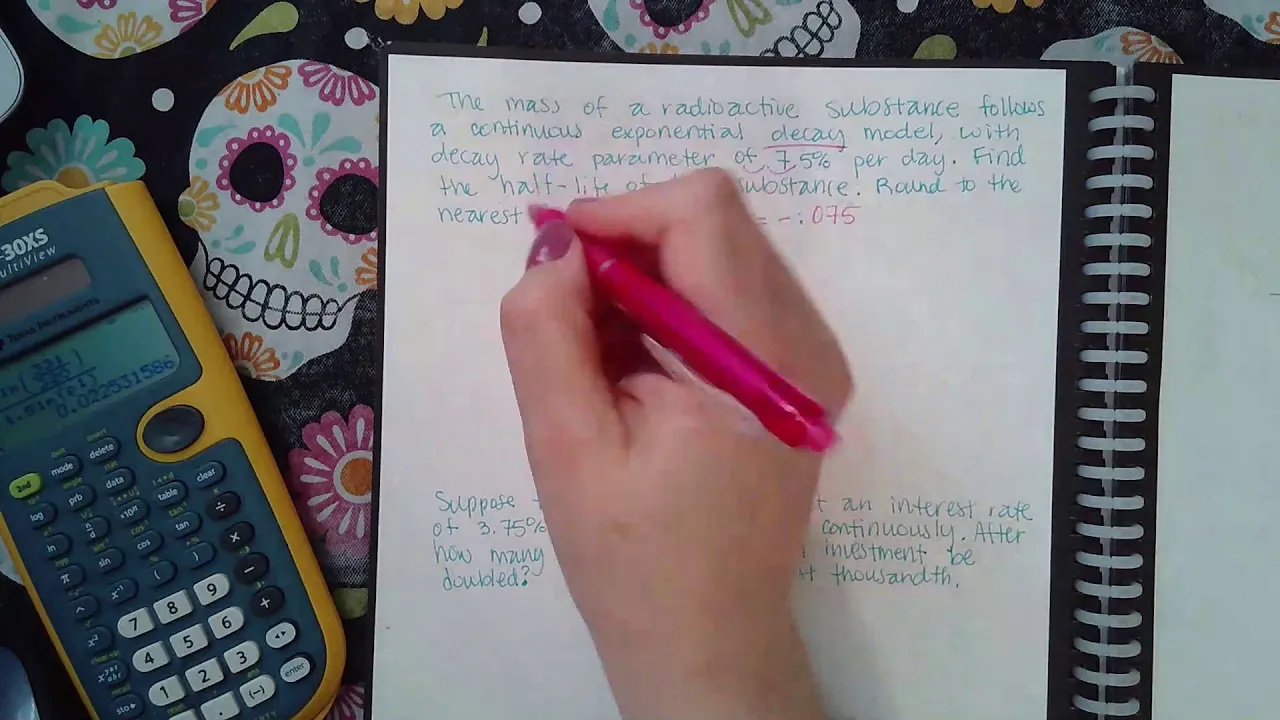 The mass of a radioactive substance follows
a continuous exponential decay model, with
decay rate parameter of 7.5% per day. Find
the half-life of substance. Round to the
nearest = -.075
Suppose an interest rate
of 3.75% continuously. After
how many investment be
doubled? thousandth.
-30XS
MultiView
Texas Instruments
0.022531586
2nd
mode
delete
log
prb
data
clear
ln
10ⁿ
table
÷
π
sin
cos
tan
×
^
x⁻¹
(
)
−
x²
7
8
9
+
4
5
6
1
2
3
(−)
enter
sto▸